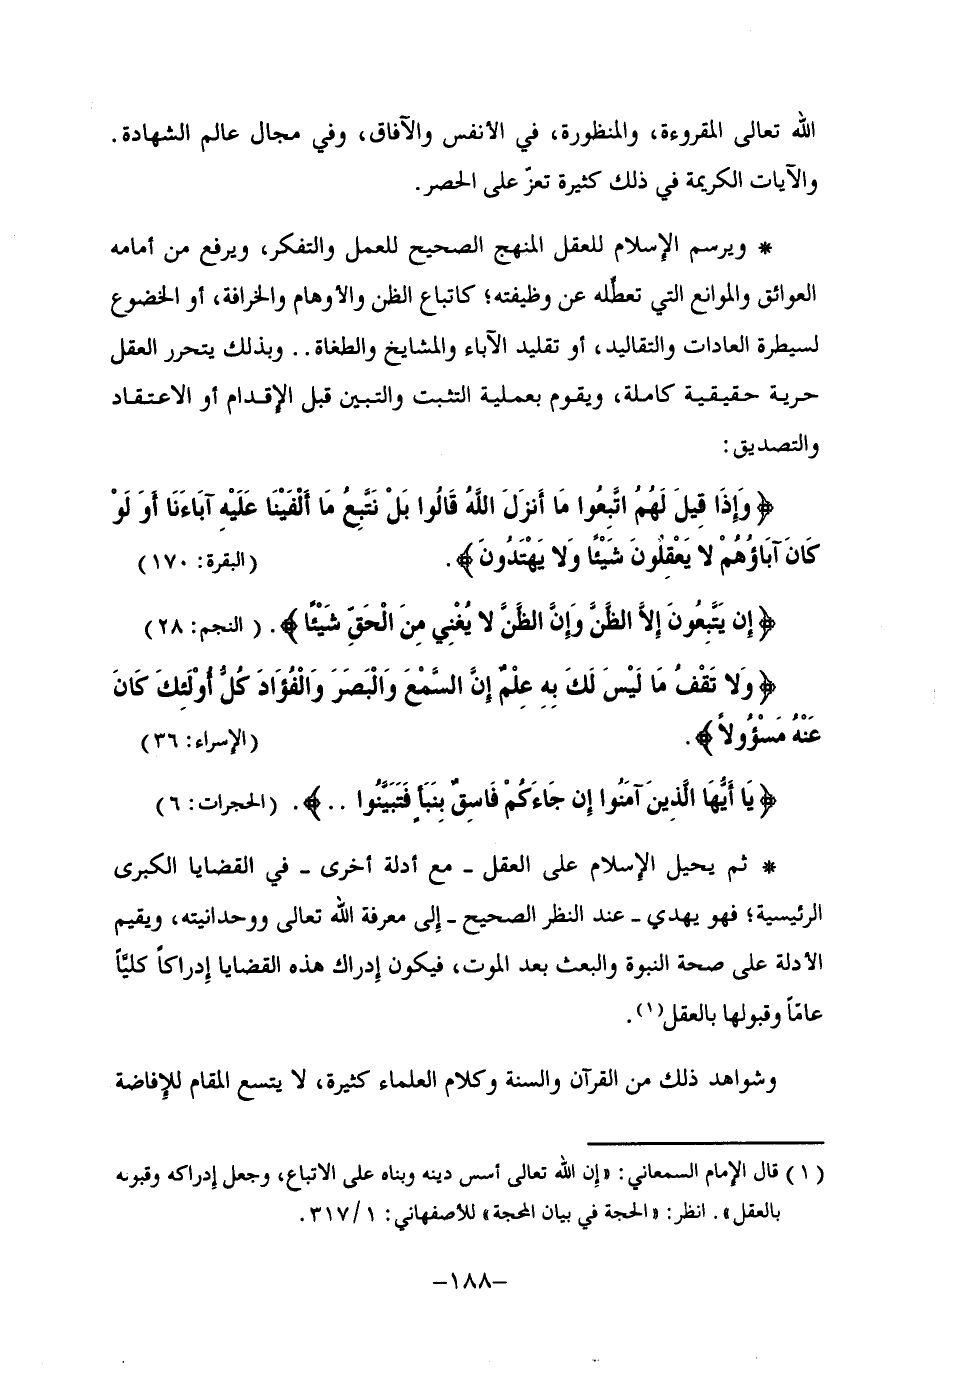 الله تعالى المقروءة، والمنظورة، في الأنفس والآفاق، وفي مجال عالم الشهادة.
والآيات الكريمة في ذلك كثيرة تعزّ على الحصر.
* ويرسم الإسلام للعقل المنهج الصحيح للعمل والتفكر، ويرفع من أمامه
العوائق والموانع التي تعطّله عن وظيفته؛ كاتباع الظن والأوهام والخرافة، أو الخضوع
لسيطرة العادات والتقاليد، أو تقليد الآباء والمشايخ والطغاة.. وبذلك يتحرر العقل
حرية حقيقية كاملة، ويقوم بعملية التثبت والتبين قبل الإقدام أو الاعتقاد
والتصديق:
﴿وَإِذَا قِيلَ لَهُمُ اتَّبِعُوا مَا أَنزَلَ اللَّهُ قَالُوا بَلْ نَتَّبِعُ مَا أَلْفَيْنَا عَلَيْهِ آبَاءَنَا أَوَ لَوْ
كَانَ آبَاؤُهُمْ لا يَعْقِلُونَ شَيْئًا وَلا يَهْتَدُونَ﴾. (البقرة: ١٧٠)
﴿إِن يَتَّبِعُونَ إِلاَّ الظَّنَّ وَإِنَّ الظَّنَّ لا يُغْنِي مِنَ الْحَقِّ شَيْئًا﴾. ( النجم: ٢٨)
﴿وَلا تَقْفُ مَا لَيْسَ لَكَ بِهِ عِلْمٌ إِنَّ السَّمْعَ وَالْبَصَرَ وَالْفُؤَادَ كُلُّ أُوْلَئِكَ كَانَ
عَنْهُ مَسْؤُولاً﴾. (الإسراء: ٣٦)
﴿يَا أَيُّهَا الَّذِينَ آمَنُوا إِن جَاءَكُمْ فَاسِقٌ بِنَبَأٍ فَتَبَيَّنُوا ..﴾. (الحجرات: ٦)
* ثم يحيل الإسلام على العقل ـ مع أدلة أخرى ـ في القضايا الكبرى
الرئيسية؛ فهو يهدي ـ عند النظر الصحيح ـ إلى معرفة الله تعالى ووحدانيته، ويقيم
الأدلة على صحة النبوة والبعث بعد الموت، فيكون إدراك هذه القضايا إدراكاً كليًّا
عامًا وقبولها بالعقل(١).
وشواهد ذلك من القرآن والسنة وكلام العلماء كثيرة، لا يتسع المقام للإفاضة
(١) قال الإمام السمعاني: «إن الله تعالى أسس دينه وبناه على الاتباع، وجعل إدراكه وقبوله
بالعقل». انظر: «الحجة في بيان المحجة» للأصفهاني: ١/ ٣١٧.
–١٨٨–